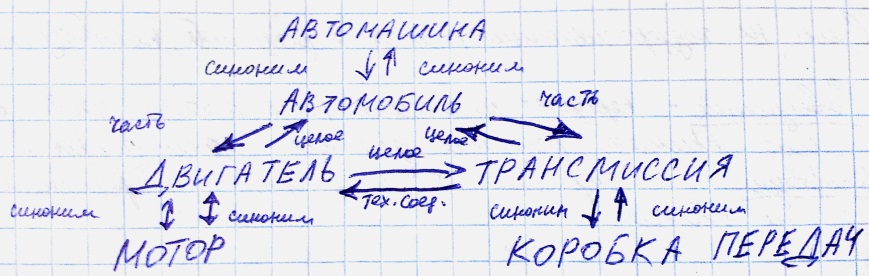 АВТОМАШИНА
синоним синоним
АВТОМОБИЛЬ
часть часть
целое целое
целое
ДВИГАТЕЛЬ ТРАНСМИССИЯ
тех. соед.
синоним синоним синоним синоним
МОТОР КОРОБКА ПЕРЕДАЧ